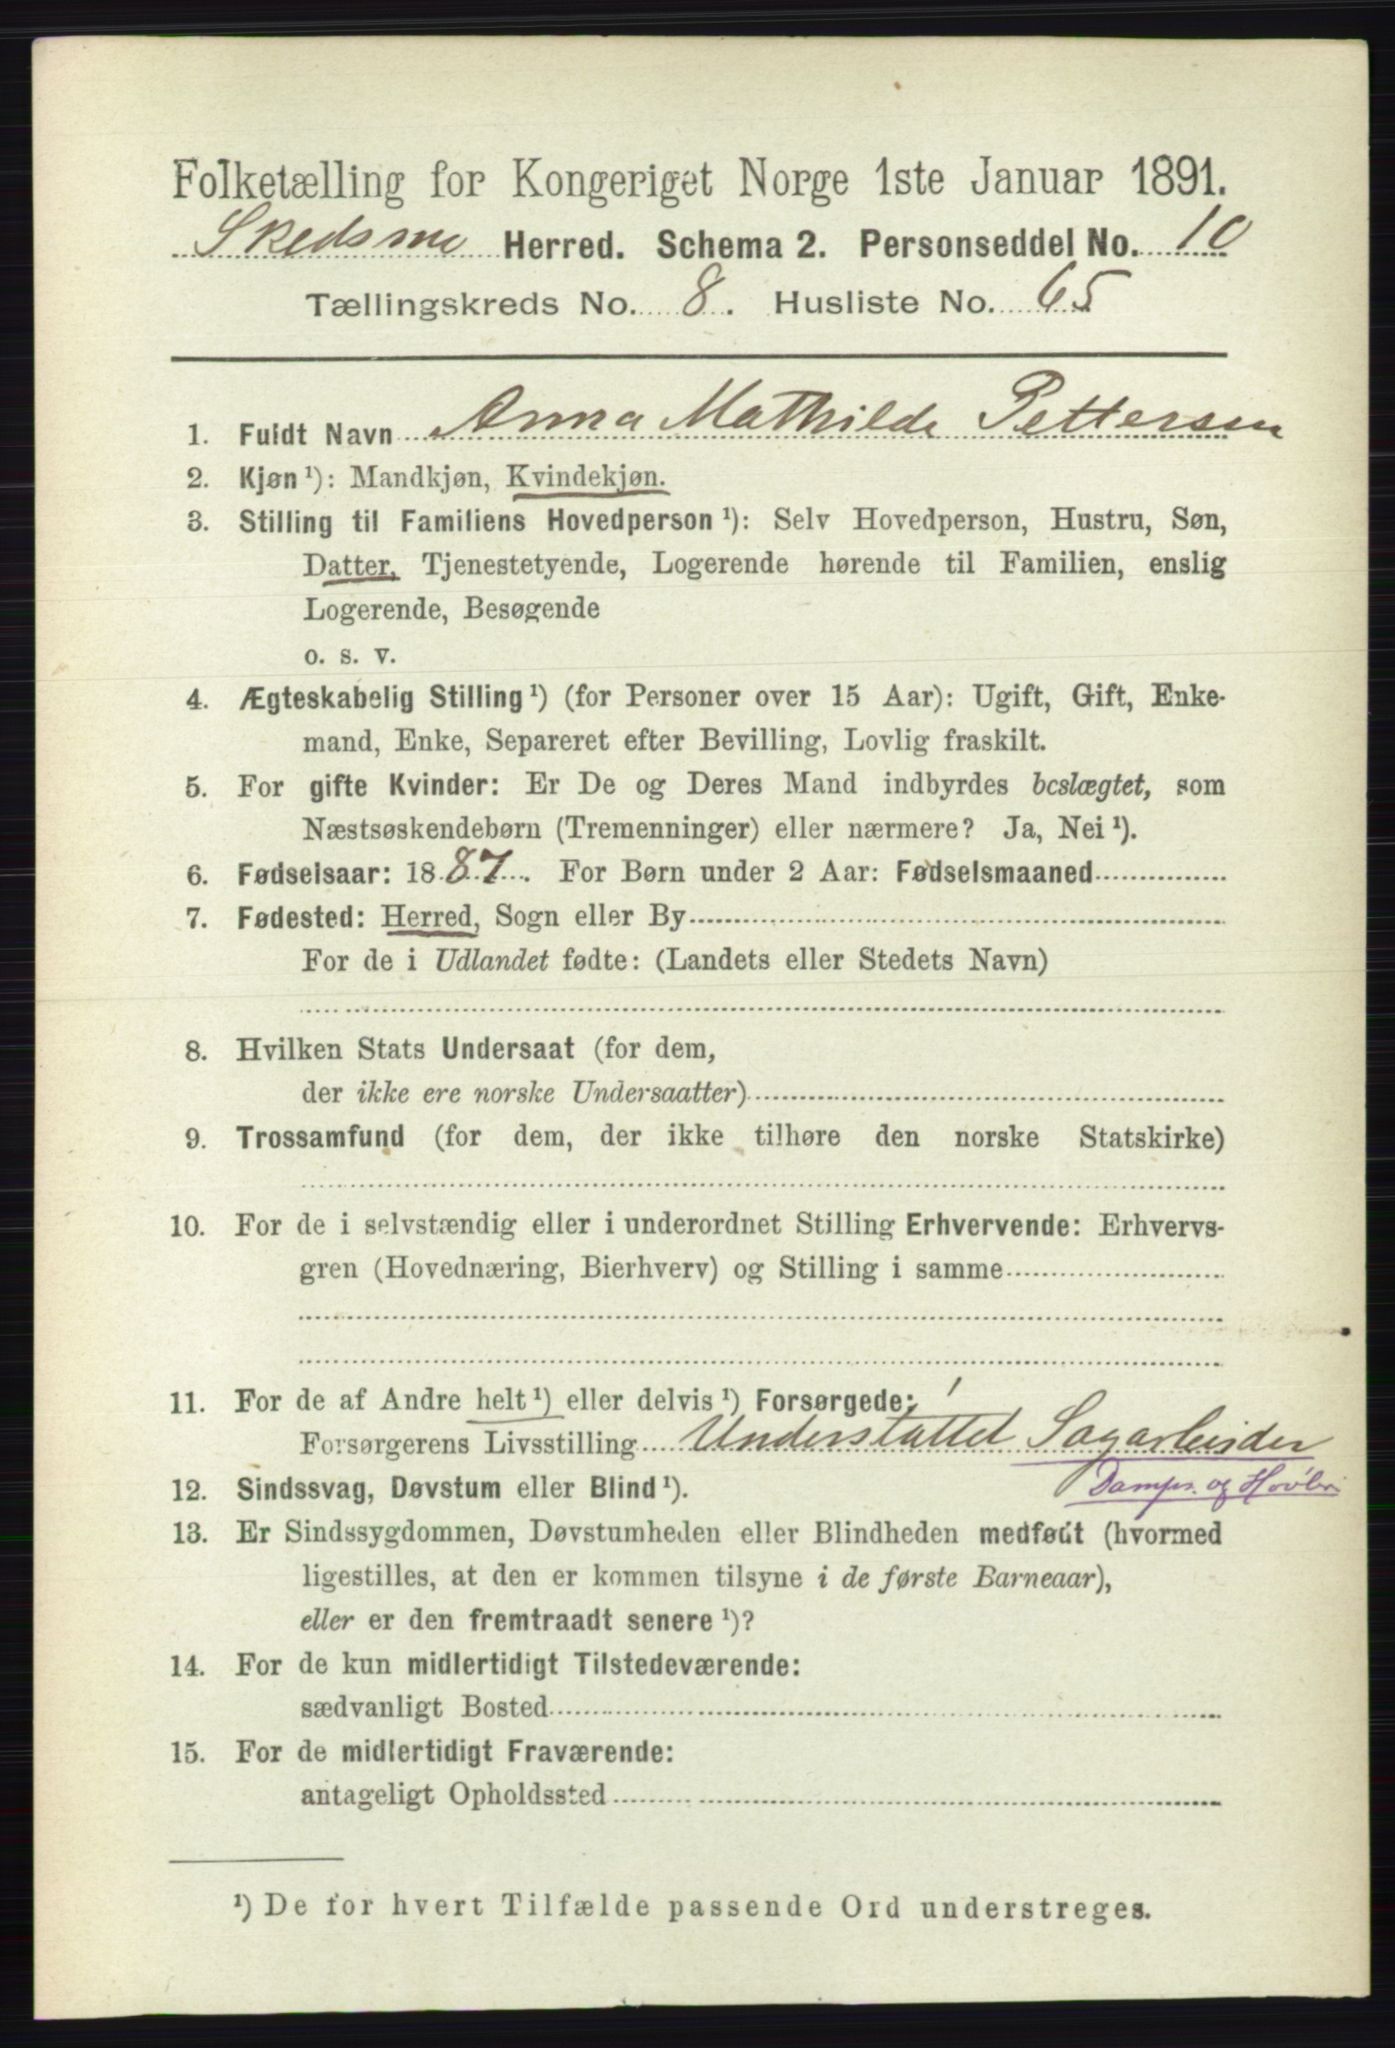 Folketælling for Kongeriget Norge 1ste Januar 1891.
Skedsmo Herred. Schema 2. Personseddel No. 10
Tællingskreds No. 8. Husliste No. 65
1. Fuldt Navn Anna Mathilde Pettersen
2. Kjøn ¹): Mandkjøn, Kvindekjøn.
3. Stilling til Familiens Hovedperson ¹): Selv Hovedperson, Hustru, Søn,
Datter, Tjenestetyende, Logerende hørende til Familien, enslig
Logerende, Besøgende
o. s. v.
4. Ægteskabelig Stilling ¹) (for Personer over 15 Aar): Ugift, Gift, Enke-
mand, Enke, Separeret efter Bevilling, Lovlig fraskilt.
5. For gifte Kvinder: Er De og Deres Mand indbyrdes beslægtet, som
Næstsøskendebørn (Tremenninger) eller nærmere? Ja, Nei ¹).
6. Fødselsaar: 1887. For Børn under 2 Aar: Fødselsmaaned
7. Fødested: Herred, Sogn eller By
For de i Udlandet fødte: (Landets eller Stedets Navn)
8. Hvilken Stats Undersaat (for dem,
der ikke ere norske Undersaatter)
9. Trossamfund (for dem, der ikke tilhøre den norske Statskirke)
10. For de i selvstændig eller i underordnet Stilling Erhvervende: Erhvervs-
gren (Hovednæring, Bierhverv) og Stilling i samme
11. For de af Andre helt ¹) eller delvis ¹) Forsørgede:
Forsørgerens Livsstilling Understøttet Sagarbeider
Damps. og Høvleri
12. Sindssvag, Døvstum eller Blind ¹).
13. Er Sindssygdommen, Døvstumheden eller Blindheden medfødt (hvormed
ligestilles, at den er kommen tilsyne i de første Barneaar),
eller er den fremtraadt senere ¹)?
14. For de kun midlertidigt Tilstedeværende:
sædvanligt Bosted
15. For de midlertidigt Fraværende:
antageligt Opholdssted
¹) De for hvert Tilfælde passende Ord understreges.